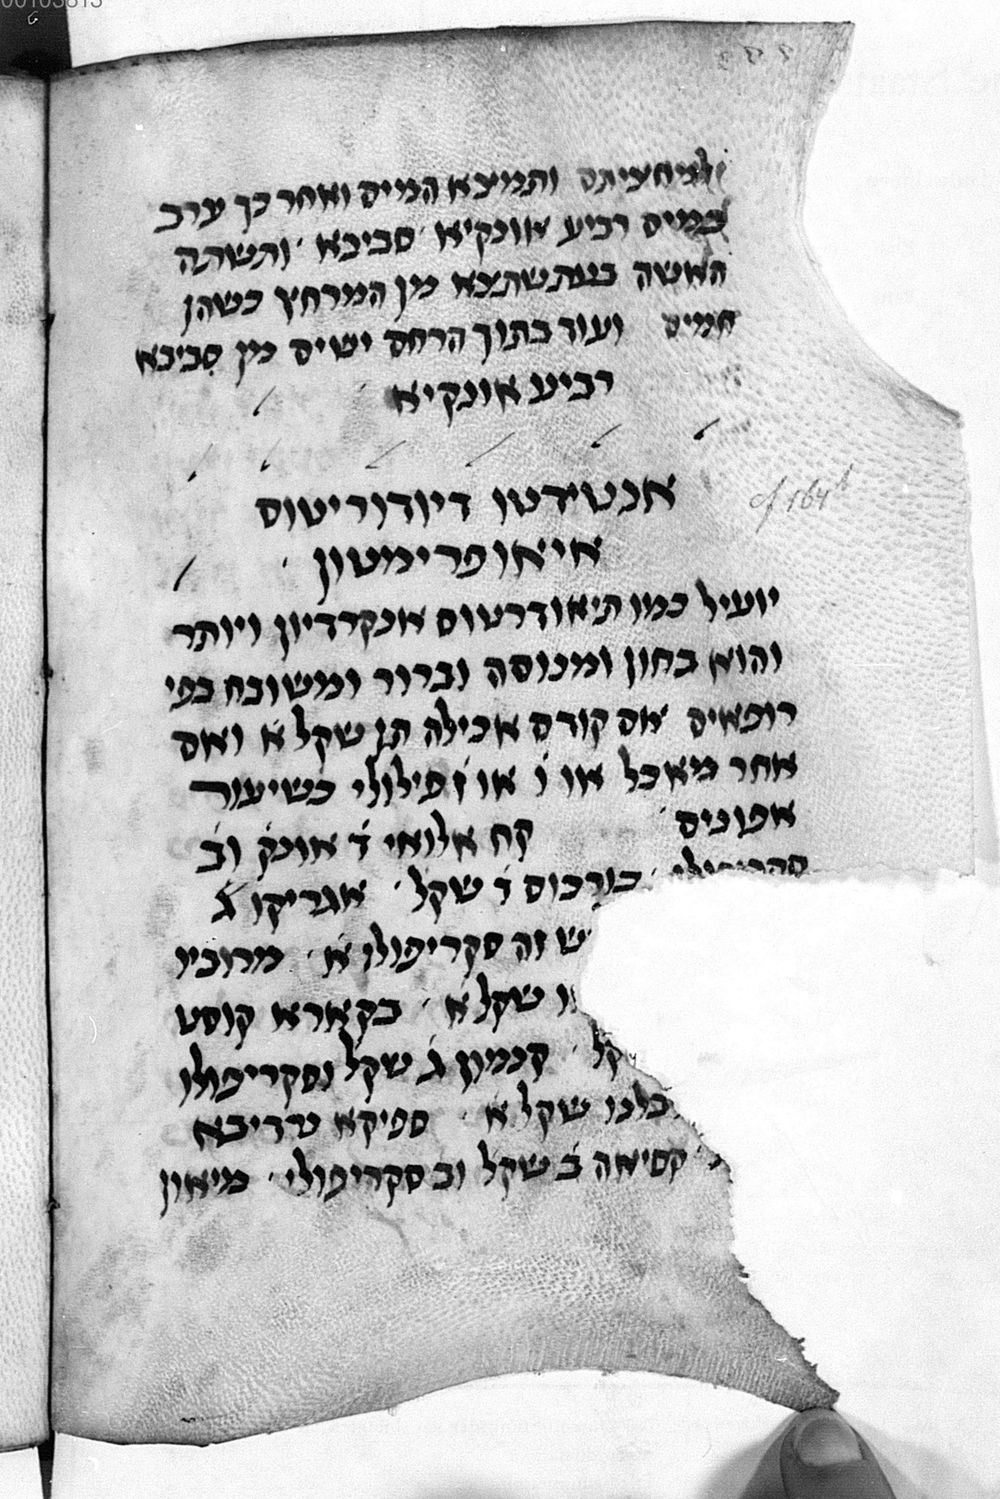 00103813
ולמחציתם ותמיצא המים ואחר כך ערב
במים רביע אונקיא סביכא ותשתה
האשה בעת שתצא מן המרחץ כשהן
חמים ועוד בתוך הרחם ישים מן סביכא
רביע אונקיא
אנטידטו דיודוריטוס
איאופרימטון
יועיל כמו תיאודרטוס אנקרדיון ויותר
והוא בחון ומנוסה וברור ומשובח בפי
רופאים אם קודם אכילה תן שקל א ואם
אחר מאכל או ו או ז פילולי כשיעור
אפונים קח אלואי ד אונק וב
כורכום ד שקל אגריקו ג
ש זה סקריפולו א מרוביו
ו שקל א בקארא קוסט
קל קנמון ג שקל וסקריפולו
בלנו שקל א ספיקא נרדיבא
קסיאה ב שקל וב סקריפולי מיאון
cf 164